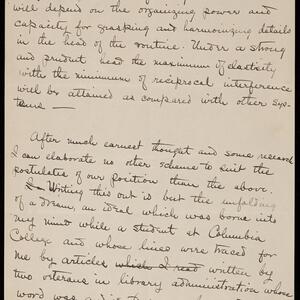 will depend on the organizing power and
capacity for grasping and harmonizing details
in the head of the routine. Under a strong
and prudent head the maximum of elasticity
with the minimum of reciprocal interference
will be attained as compared with other sys-
tems —
After much earnest thought and some research
I can elaborate no other scheme to suit the
postulates of our position than the above.
Writing this out is but the unfolding
of a dream, an ideal which was borne into
my mind while a student at Columbia
College and whose lines were traced for
me by articles which I read written by
two veterans in library administration whose
word was a